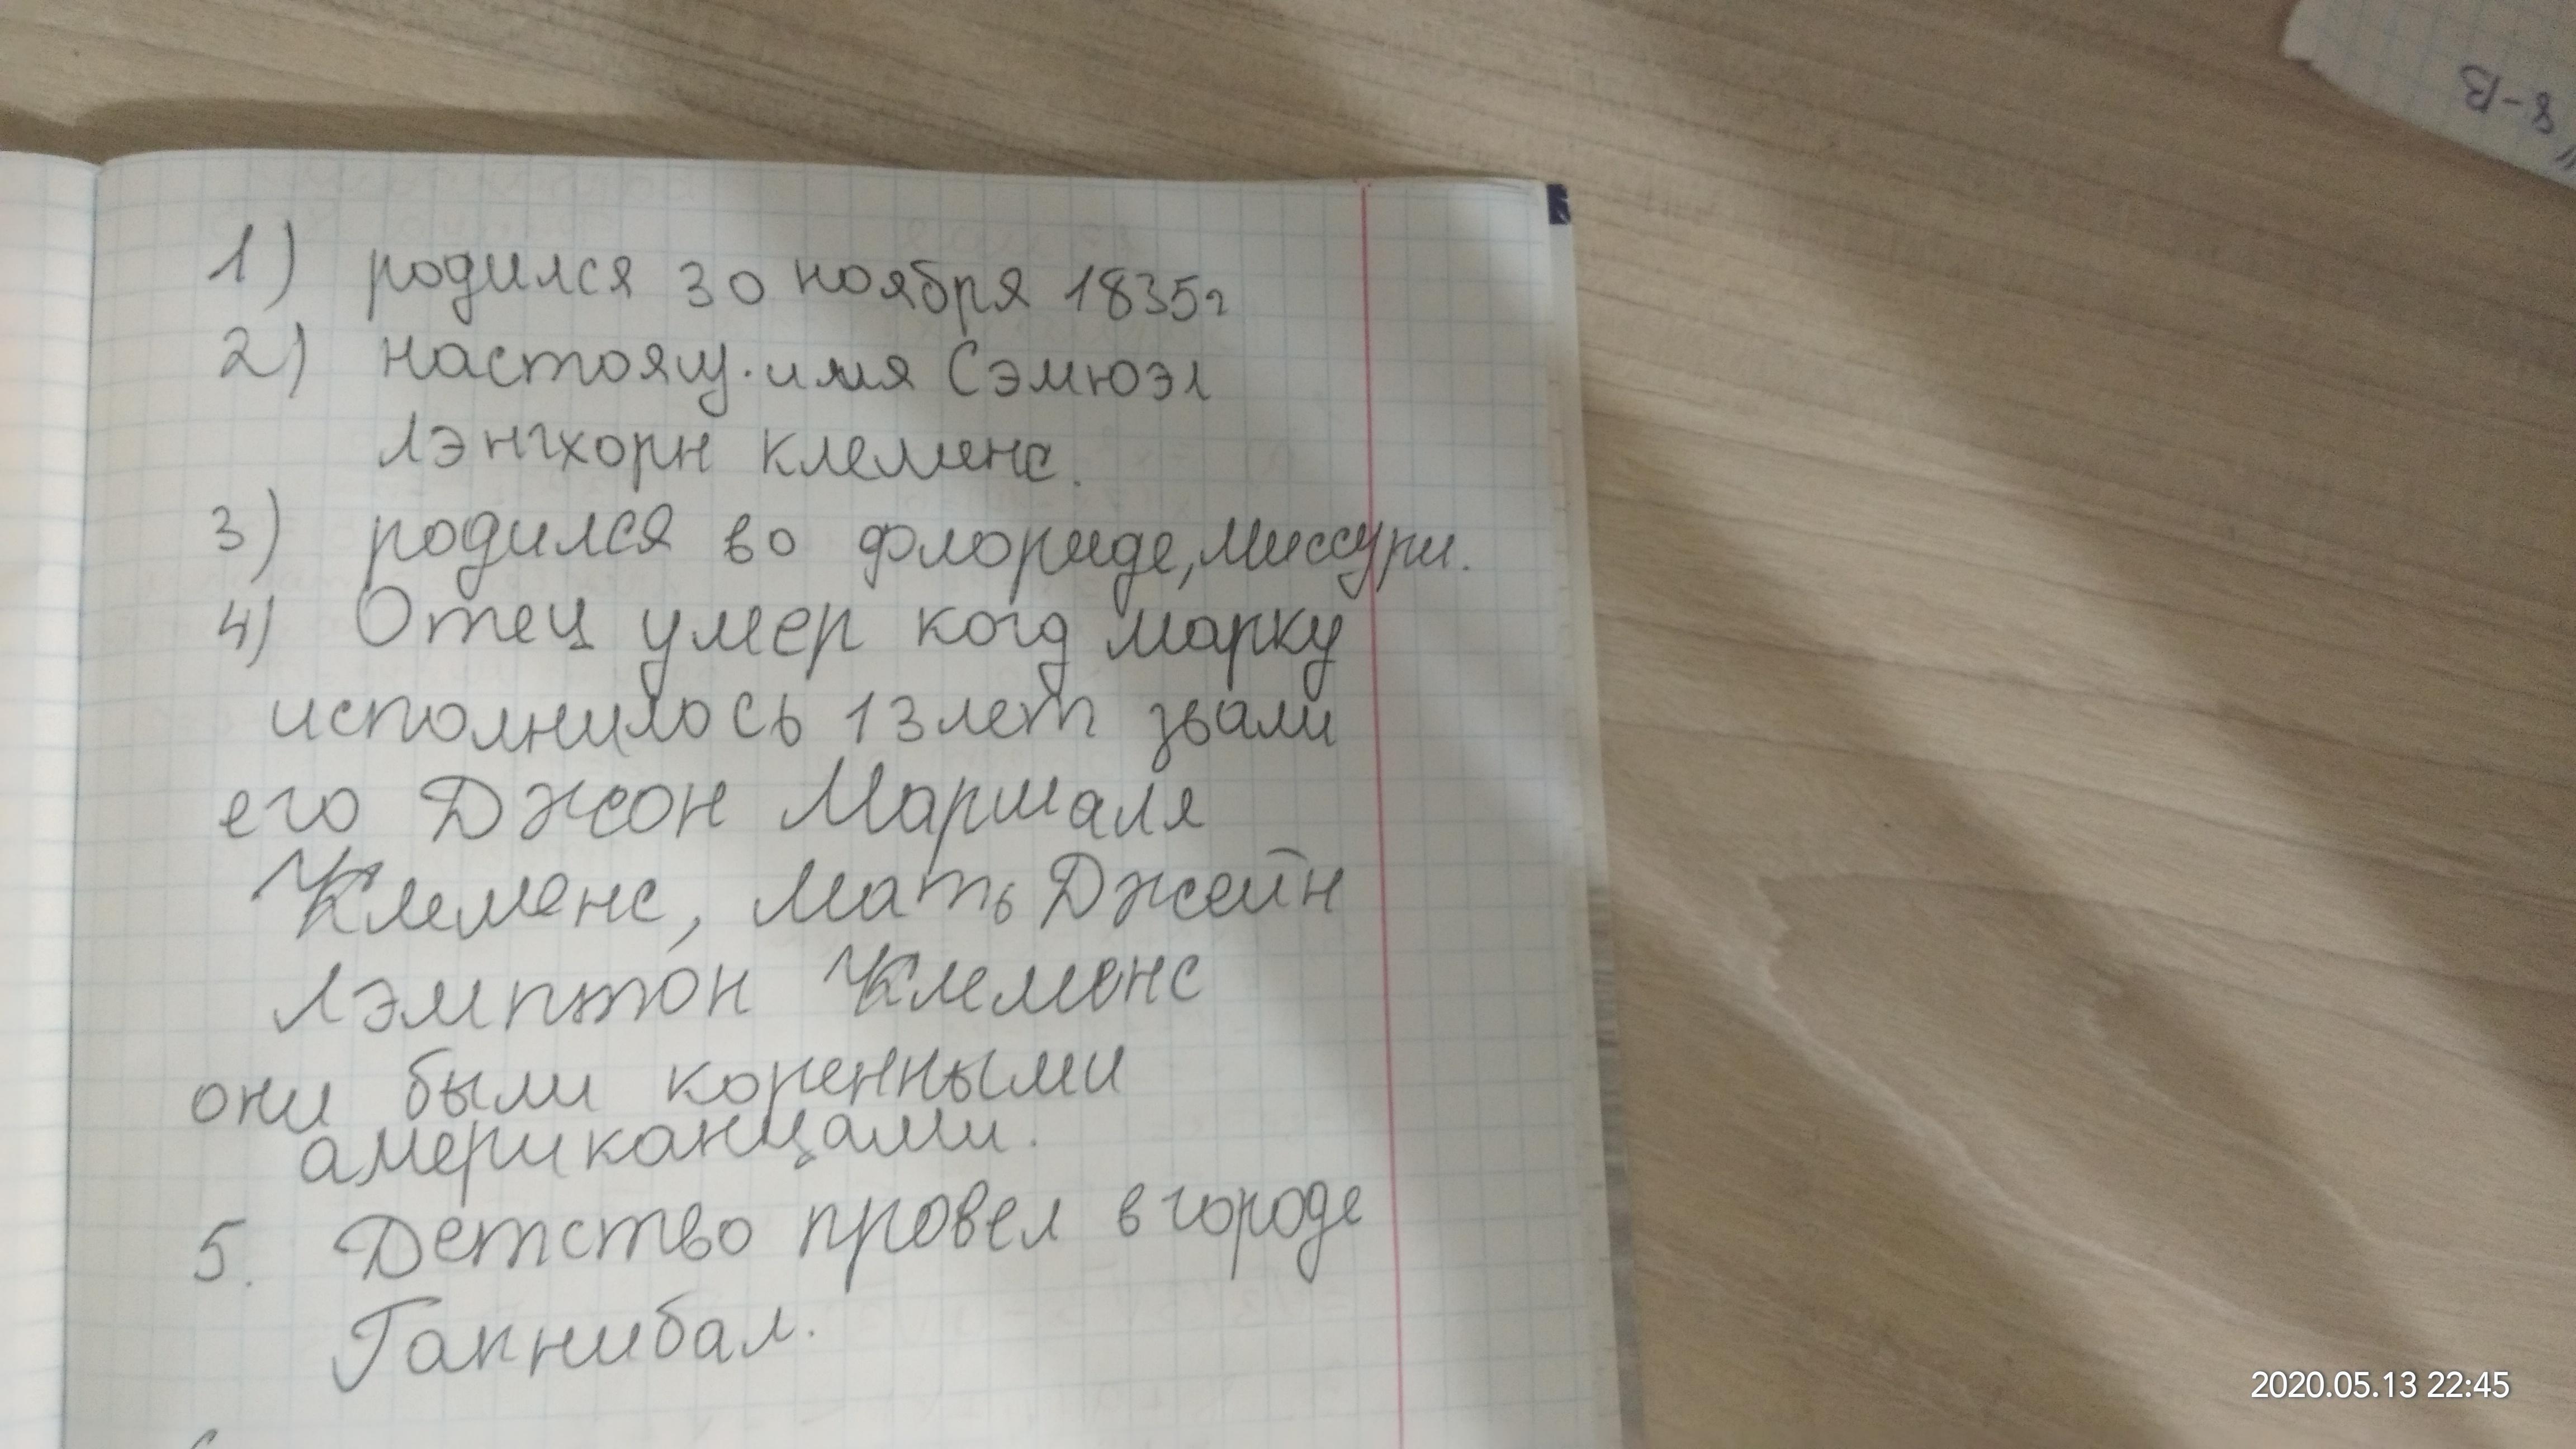 1) родился 30 ноября 1835г
2) настоящ. имя Сэмюэл
Лэнгхорн Клеменс.
3) родился во флориде, Миссури.
4) Отец умер когд марку
исполнилось 13 лет звали
его Джон Маршаля
Клеменс, мать Джейн
Лэмптон Клеменс
они были коренными
американцами.
5. Детство провел в городе
Гапнибал.
8-В
2020.05.13 22:45